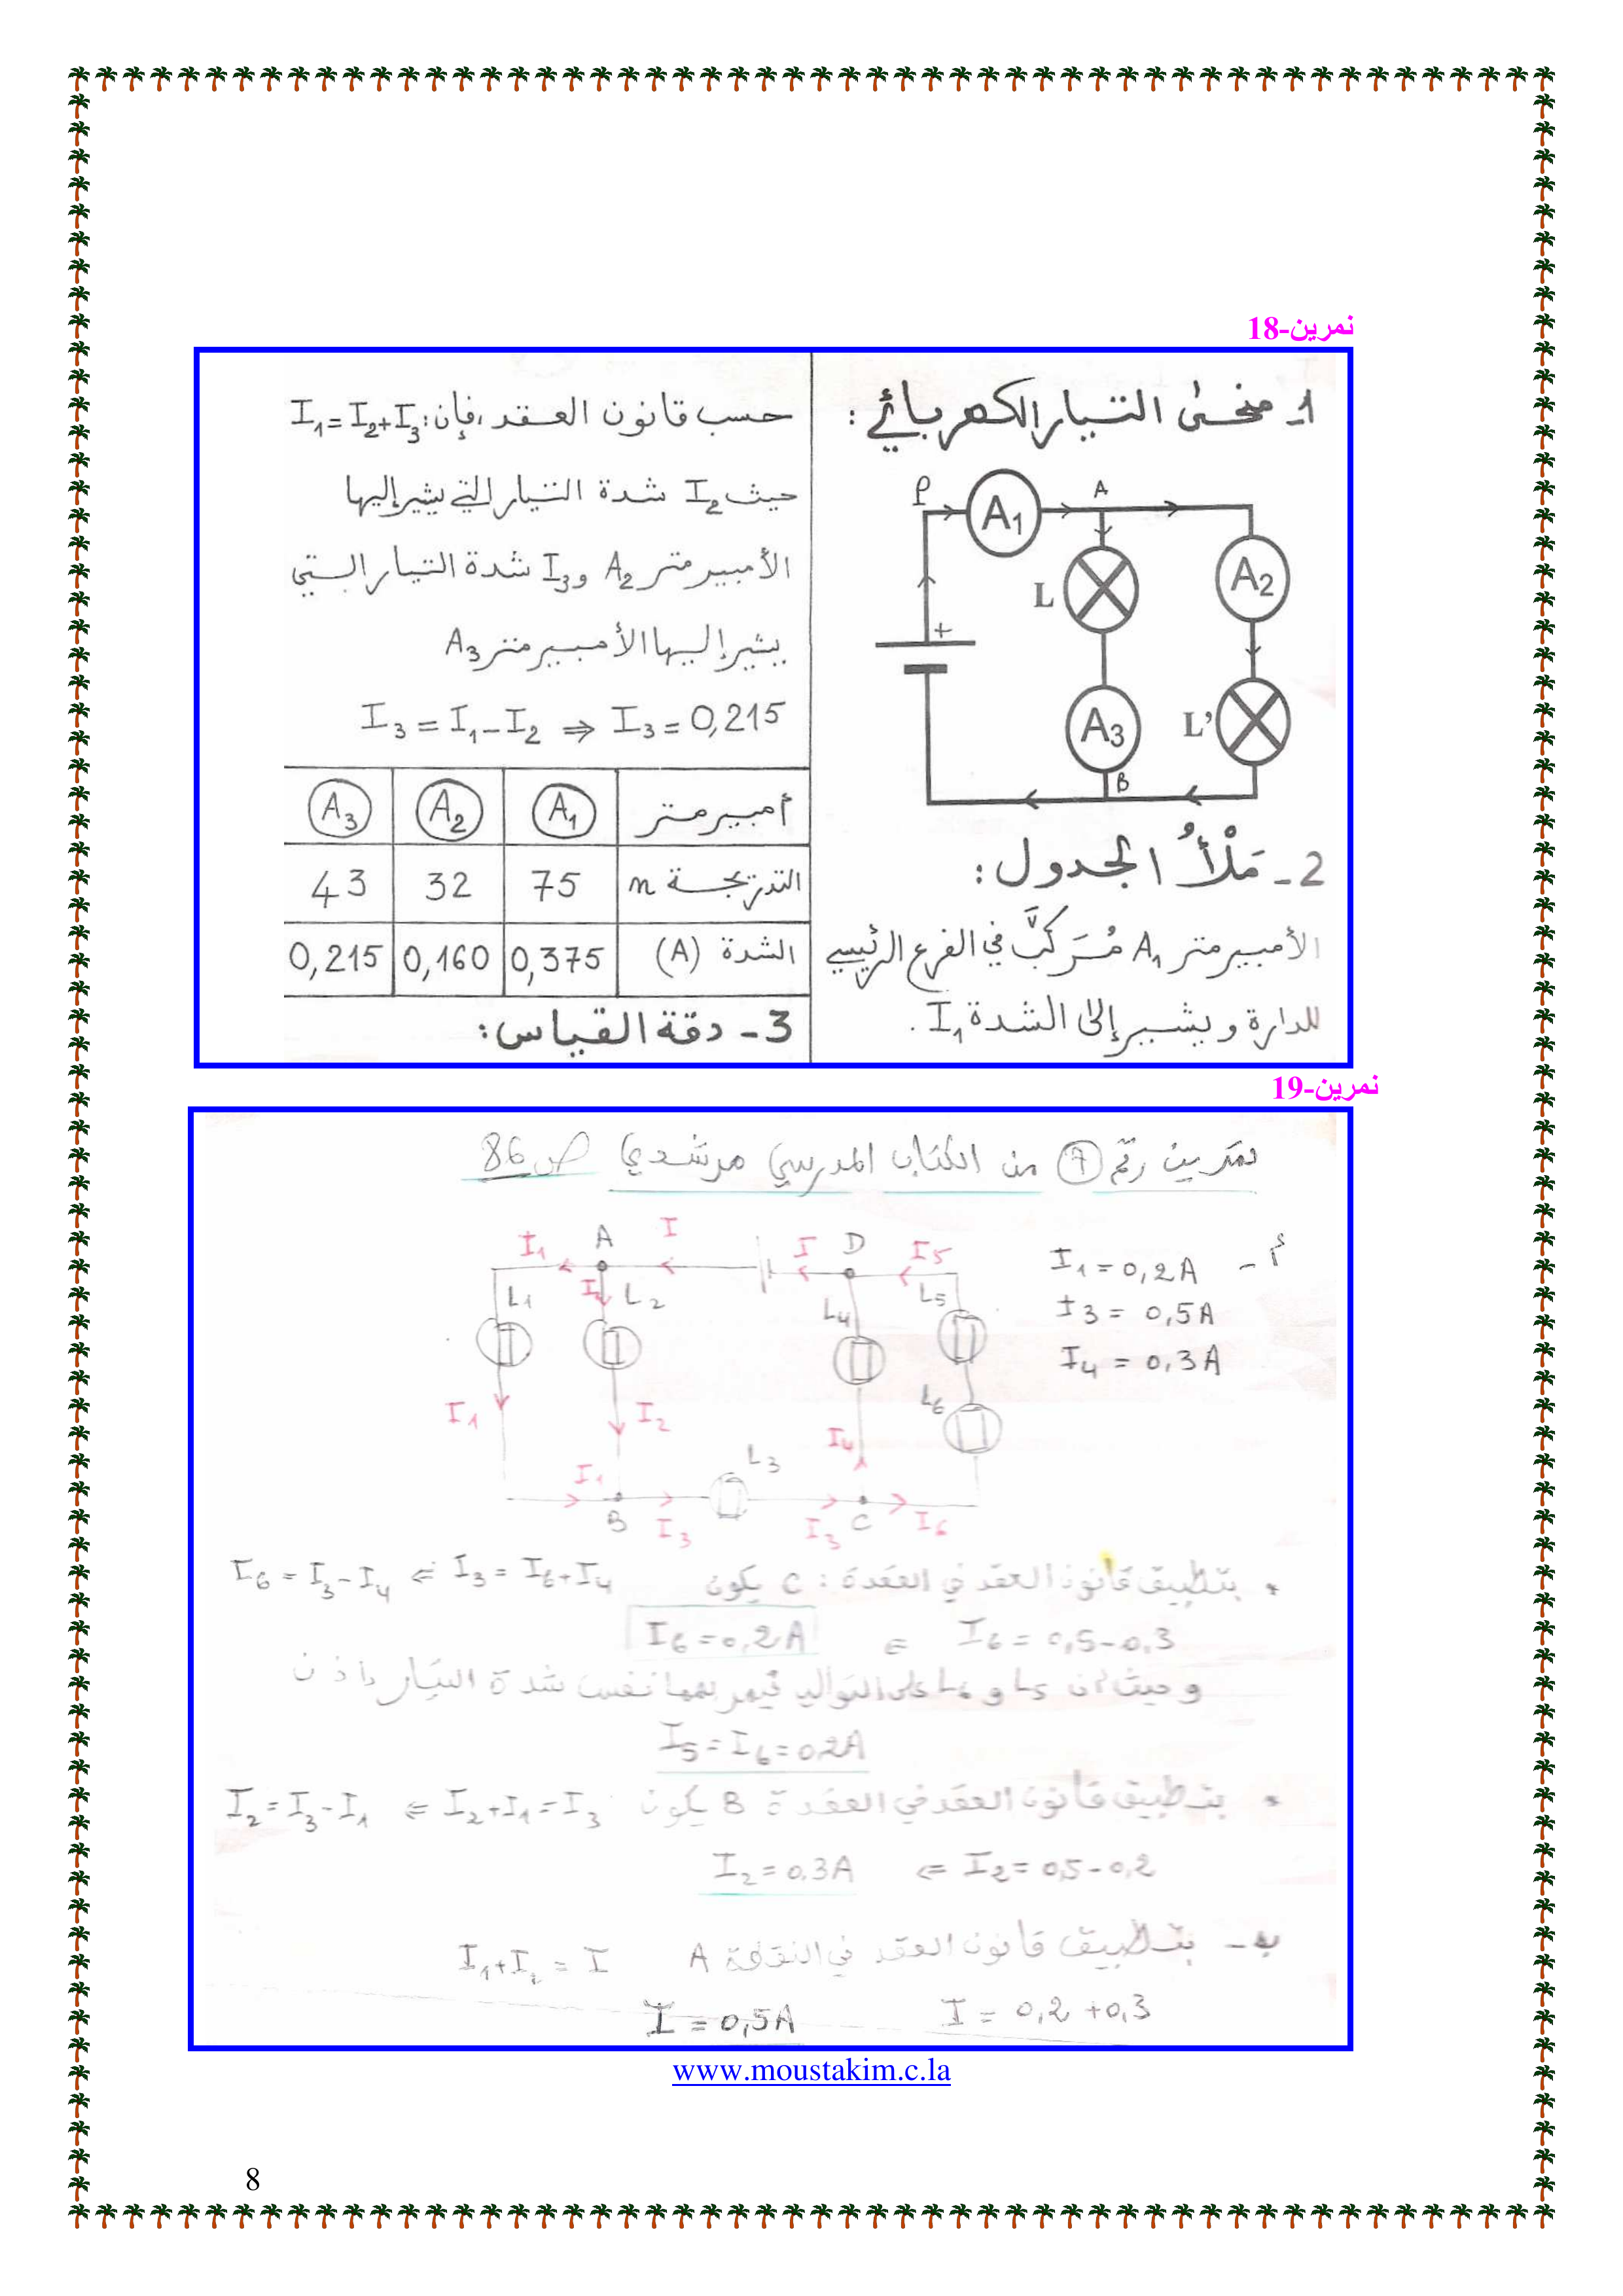 تمرين-18
1- منحى التيار الكهربائي :
P
A₁
A
L
A₂
+
A₃
L'
B
2- مَلْأُ الجدول :
الأمبيرمتر A₁ مُرَكَّب في الفرع الرئيسي
للدارة ويشير إلى الشدة I₁ .
حسب قانون العقد، فإن: I₁ = I₂+I₃
حيث I₂ شدة التيار التي يشير إليها
الأمبيرمتر A₂ و I₃ شدة التيار التي
يشير إليها الأمبيرمتر A₃
I₃ = I₁-I₂ ⇒ I₃ = 0,215
أمبيرمتر A₁ A₂ A₃
التدريجة n 75 32 43
الشدة (A) 0,375 0,160 0,215
3- دقة القياس:
تمرين-19
تمرين رقم 7 من الكتاب المدرسي مرشدي ص 86
أ - I₁ = 0,2A
I₃ = 0,5A
I₄ = 0,3A
I₁ A I I D I₅
L₁ L₂ L₄ L₅
I₁ I₂ I₄ L₆
I₁ L₃
B I₃ I₃ C I₆
* بتطبيق قانون العقد في العقدة : C يكون I₃ = I₆+I₄ ⇐ I₆ = I₃-I₄
I₆ = 0,5-0,3 ⇐ I₆ = 0,2A
و حيث أن L₅ و L₆ على التوالي فيمر بهما نفس شدة التيار إذن
I₅ = I₆ = 0,2A
* بتطبيق قانون العقد في العقدة B يكون I₂+I₁ = I₃ ⇐ I₂ = I₃-I₁
I₂ = 0,5-0,2 ⇐ I₂ = 0,3A
ب - بتطبيق قانون العقد في النقطة A I₁+I₂ = I
I = 0,2 +0,3 I = 0,5A
www.moustakim.c.la
8